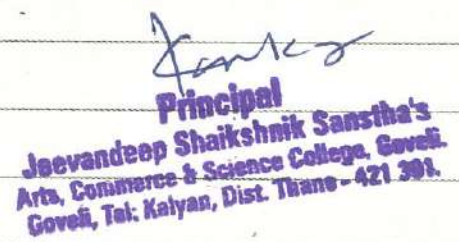 Principal
Jeevandeep Shaikshnik Sanstha's
Arts, Commerce & Science College, Goveli.
Goveli, Tal: Kalyan, Dist. Thane - 421 301.